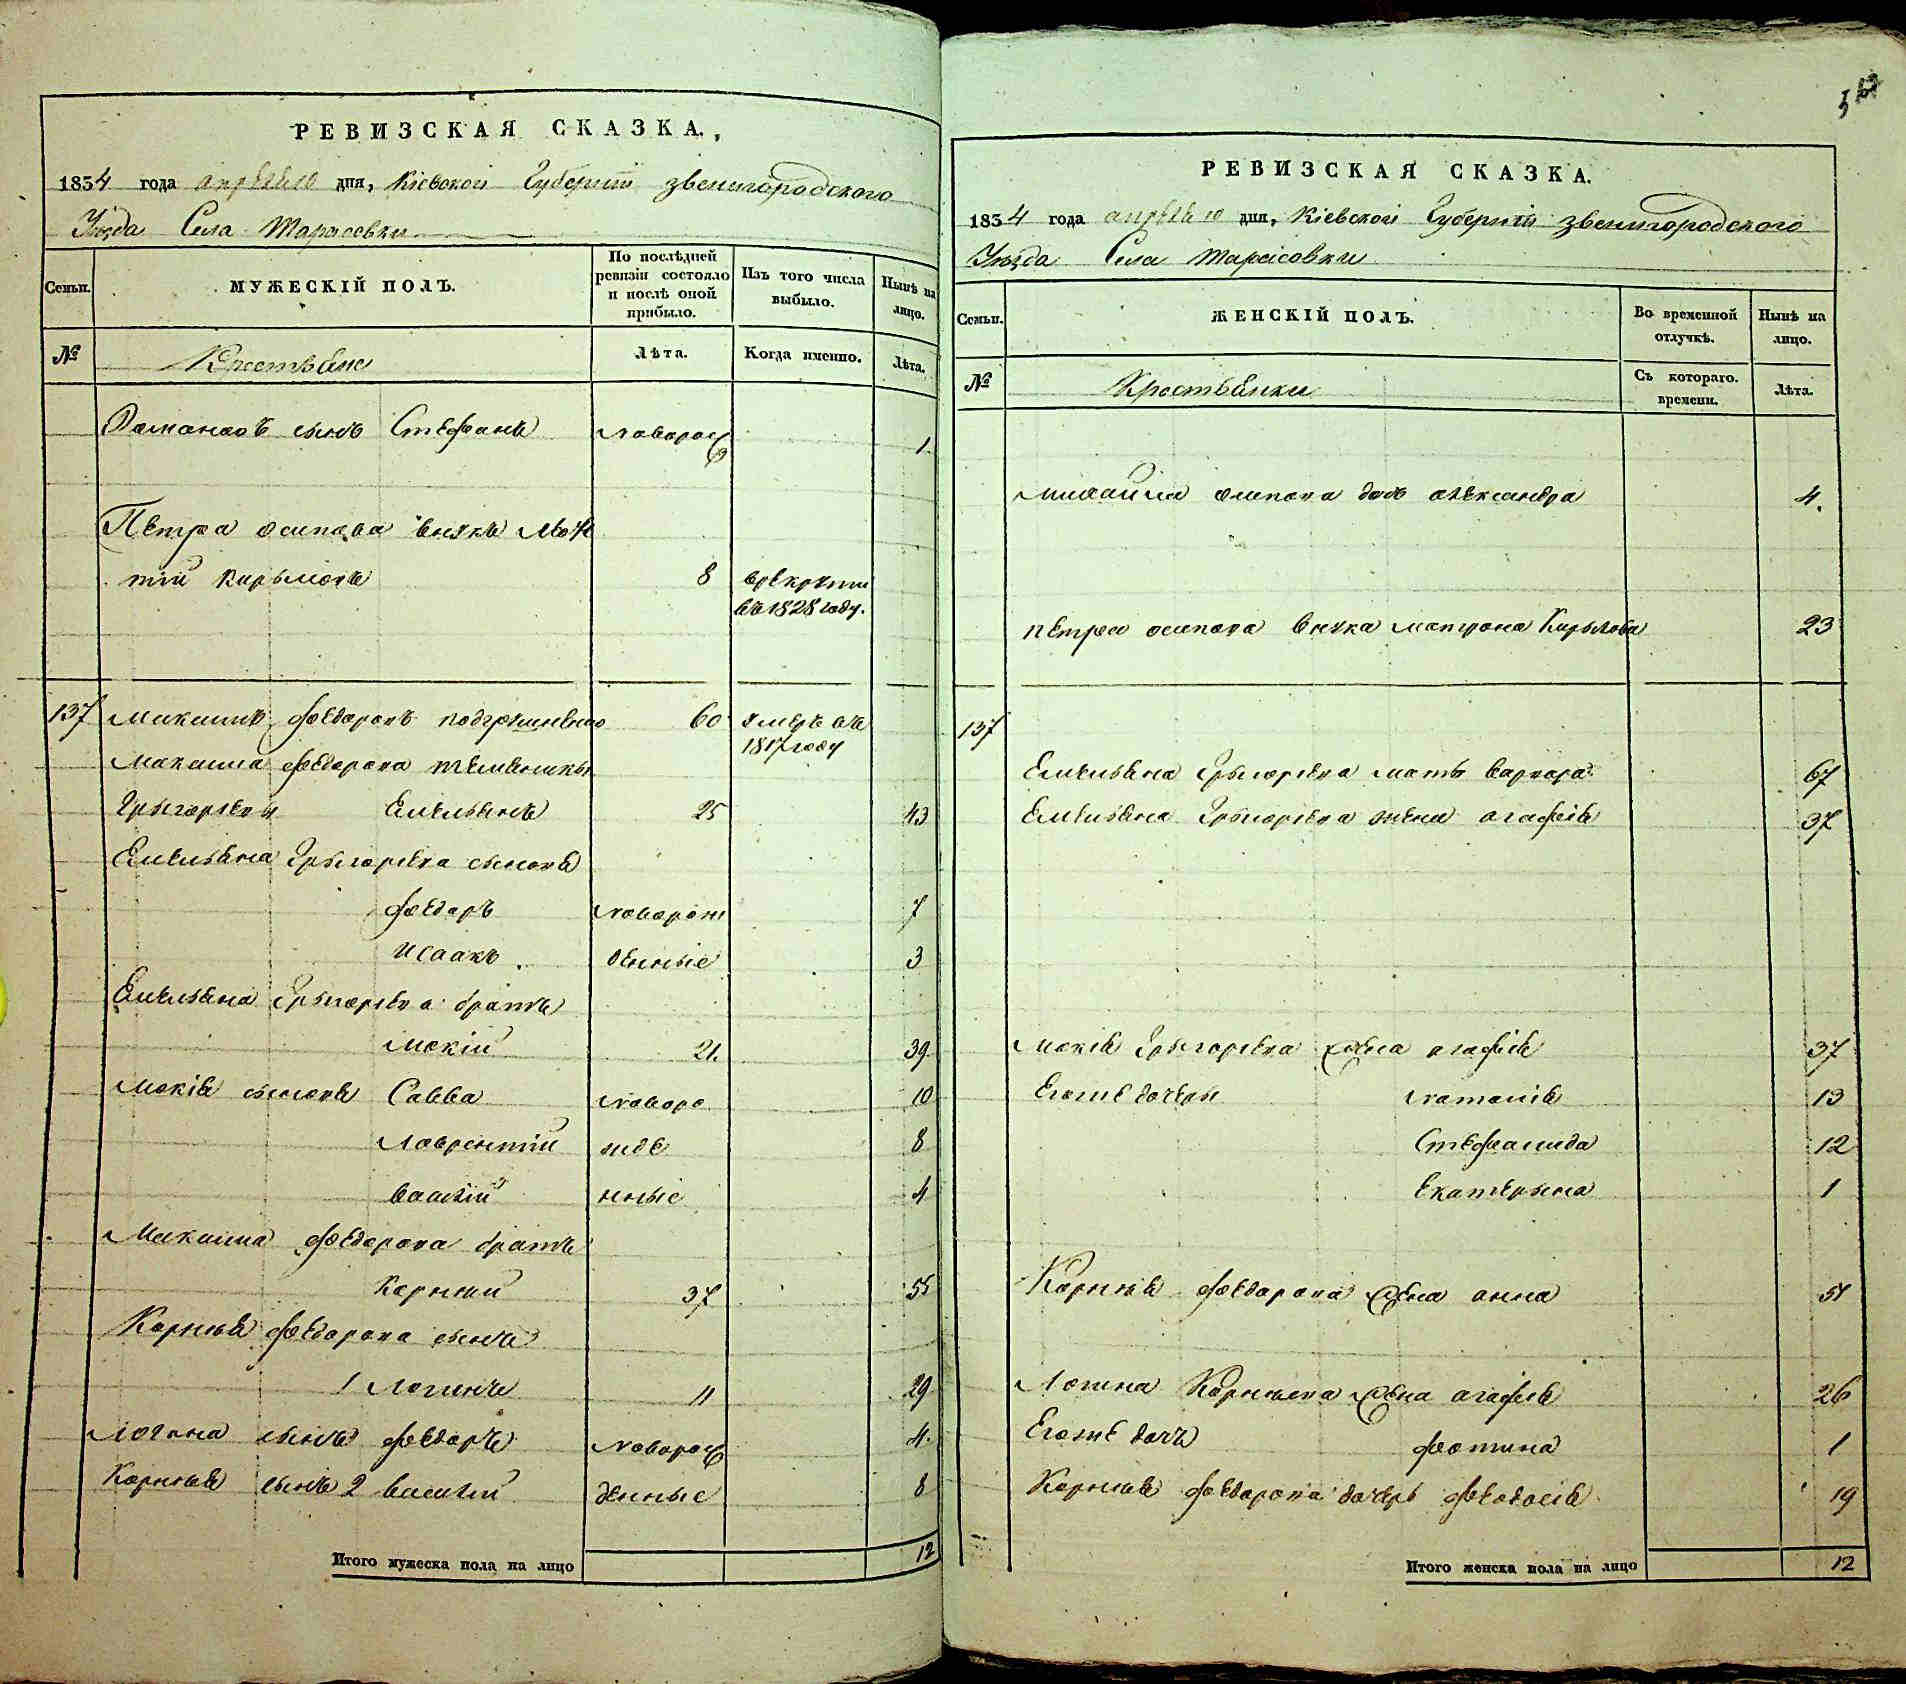 РЕВИЗСКАЯ СКАЗКА.
1834 года апреля 10 дня, Кіевской Губерніи звенигородского
Уезда Села Тарасовки
Семьи. МУЖЕСКІЙ ПОЛЪ. По послѣдней ревизіи состояло и послѣ оной прибыло. Изъ того числа выбыло. Нынѣ на лицо.
№ Крестьяне Лѣта. Когда именно. Лѣта.
сынъ Стефанъ новорож 1.
Петра осипова внукъ
тій Кирыловъ 8 врекруты
въ 1828 году.
137 Максимъ федоровъ 60 умеръ въ
1817 году
Максима федорова племеникъ
Грыгорieвъ Емельянъ 25 43
Емельяна Грыгорieва сыновя
федоръ новорож 7
Исаакъ денные 3
Емельяна Грыгорieва братъ
Мокій 21. 39
Мокія сыновя Савва новоро 10
Лаврентій жде 8
василій нные 4
Максима федорова братъ
Корній 37 55
Корнія федорова сынъ
1 Логинъ 11 29
Логина сынъ федоръ новорож 4.
Корнія сынъ 2 василій денные 8
Итого мужеска пола на лицо 12
РЕВИЗСКАЯ СКАЗКА.
1834 года апреля 10 дня, Кіевской Губерніи звенигородского
Уезда Села Тарасовки
Семьи. ЖЕНСКІЙ ПОЛЪ. Во временной отлучкѣ. Нынѣ на лицо.
№ Крестьянки Съ котораго времени. Лѣта.
осипова дочь александра 4.
петра осипова внука матрона Кирылова 23
137
Емельяна Грыгорieва мать варвара 67
Емельяна Грыгорieва жена агафія 37
Мокія Грыгорieва жена агафія 37
Егоже дочеры наталія 13
Стефанида 12
Екатерына 1
Корнія федорова жена анна 51
Логина Корніева жена агафія 26
Егоже дочъ фотина 1
Корнія федорова дочерь феодосія 19
Итого женска пола на лицо 12